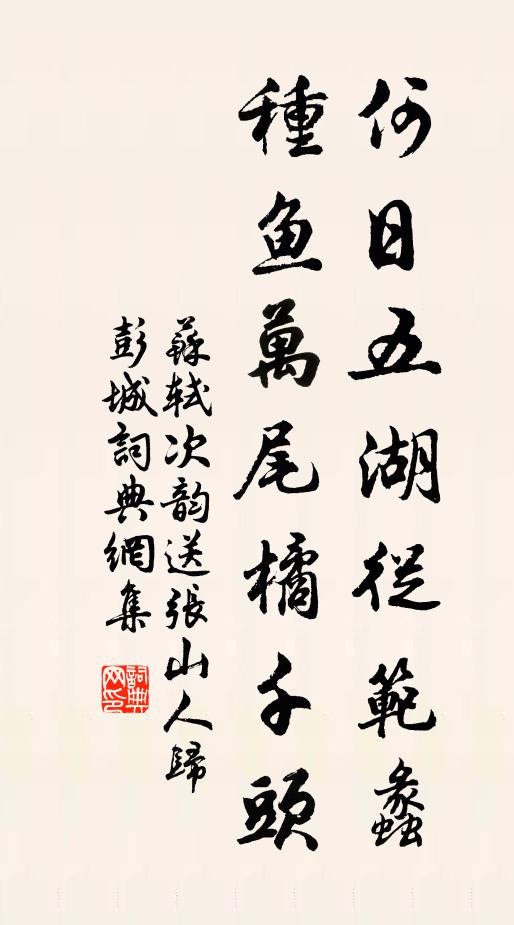 何日五湖從範蠡
種鱼萬尾橘千頭
蘇軾次韵送張山人歸
彭城詞典網集
詞典网印